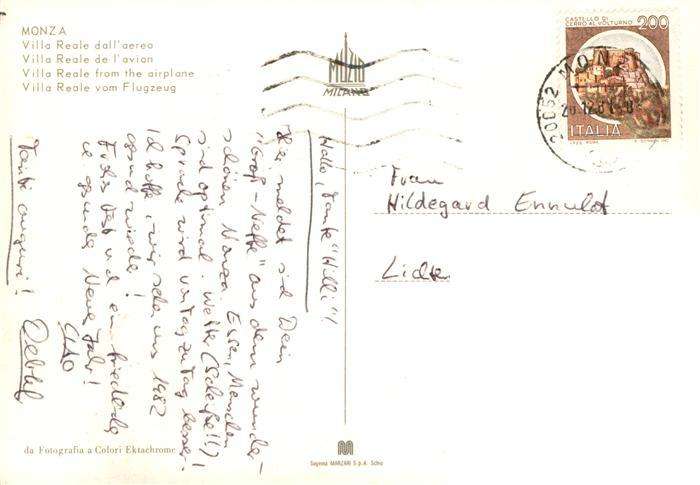 MONZA
Villa Reale dall'aereo
Villa Reale de l'avion
Villa Reale from the airplane
Villa Reale vom Flugzeug
MUZIO
MILANO
CASTELLO DI
CERRO AL VOLTURNO
200
ITALIA
20052 MONZA
Frau
Hildegard
Hallo, Tante "Hilli"!
Hier meldet sich Dein
"Groß-Neffe" aus dem wunder-
schönen Monza. Essen, Menschen
sind optimal. Wetter (Scheiße!!)!
Sprache wird von Tag zu Tag besser.
Ich hoffe, wir sehen uns 1982
gesund wieder!
Frohes Fest und ein friedliches
u. gesundes Neues Jahr!
CIAO
Tanti auguri! Detlef
da Fotografia a Colori Ektachrome
Sagrena MANZARI S.p.A. Schio